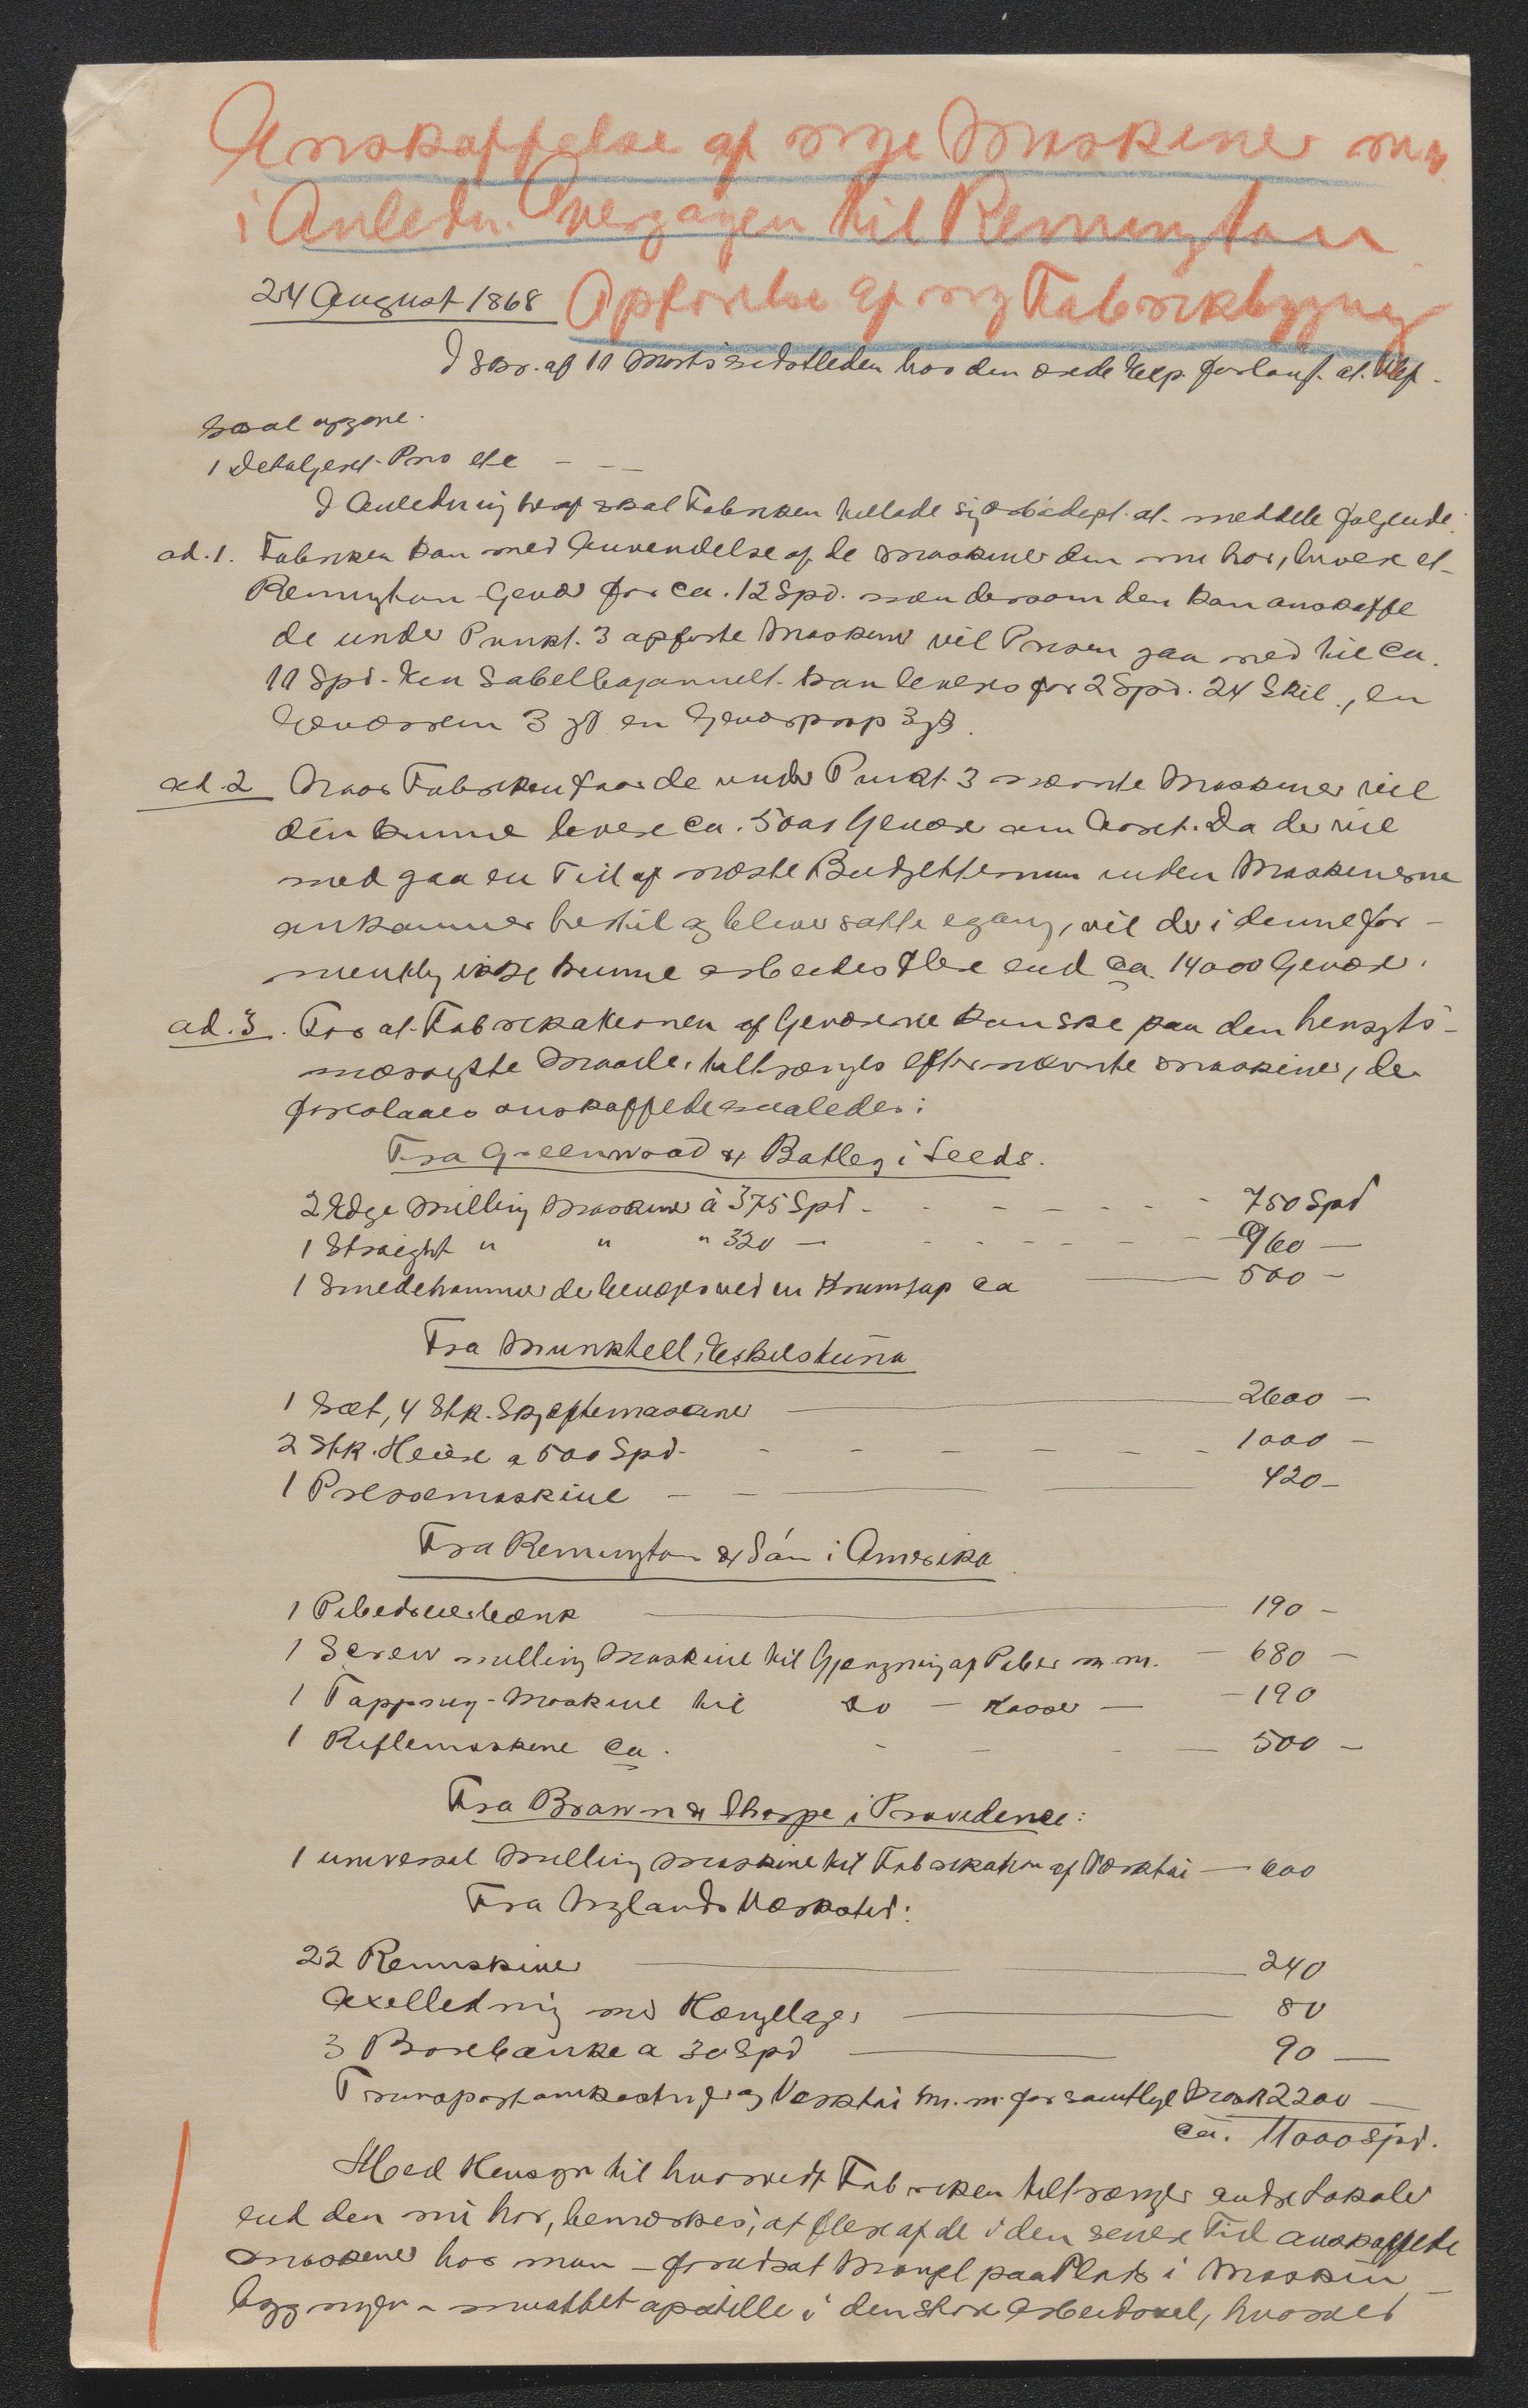 Anskaffelse af nye Maskiner m.m.
i Anledn. Overgangen til Remington
24 August 1868 Opførelse af ny Fabrikbygning
I Skr. af 11 Marts sidstleden har den ærede Exp. forlangt at
skal opgive.
1 Detaljeret Pris etc - - -
I Anledning heraf skal Fabriken tillade sig ærbødigst at meddele følgende:
ad. 1. Fabriken kan med Anvendelse af de Maskiner den nu har, levere et
Remington Gevær for ca. 12 Spd. men dersom den kan anskaffe
de under Punkt. 3 opførte Maskiner vil Prisen gaa ned til ca.
11 Spd. En Sabelbajonnett kan leveres for 2 Spd. 24 Skil., en
Geværrem 3 en Geværprop 3 ß.
ad. 2 Naar Fabriken faar de under Punkt 3 nævnte Maskiner vil
den kunne levere ca. 5000 Gevære om Aaret. Da der vil
med gaa en Tid af næste Budgettermin inden Maskinerne
ankommer hertil og bliver satte igang, vil der i denne for-
mentlig ikke kunne arbeides flere end ca. 14000 Gevære.
ad. 3. For at Fabrikationen af Geværerne kan ske paa den hensigts-
mæssigste Maade, tiltrænges efternævnte Maskiner, der
foreslaaes anskaffede saaledes:
Fra Greenwood & Batley i Leeds.
2 Edge Milling Maskiner à 375 Spd - - - - - 750 Spd
1 Straight " " " 320 - - - - - - 960 -
1 Smedehammer der bevæges ved en Krumtap ca 500 -
Fra Munktell, Eskilstuna
1 Sæt, 4 Stk. Skjæftemaskiner 2600 -
2 Stk. Heise a 500 Spd - - - - - - 1000 -
1 Pressemaskine - - 420 -
Fra Remington & Sån i Amerika.
1 Pibedreiebænk 190 -
1 Screw milling Maskine til Gjængning af Piber m.m. - 680 -
1 Tapping-Maskine til do - Kasser - - 190
1 Riflemaskine ca. - - - 500 -
Fra Brown & Sharpe i Providence:
1 universal Milling Maskine til Fabrikation af Værktøi - 600
Fra Nylands Værksted:
22 Remskiver 240
Axelledning med Hængelager 80
3 Borebænke a 30 Spd 90 -
Transportomkostninger og Værktøi m.m. for samtlige Mask 2200 -
ca. 11000 Spd.
Med Hensyn til hvorvidt Fabriken tiltrænger andre Lokaler
end den nu har, bemærkes, at flere af de i den senere Tid anskaffede
Maskiner har man - formedelst Mangel paa Plads i Maskin-
bygningen - maattet opstille i den store Arbeidssal, hvorved